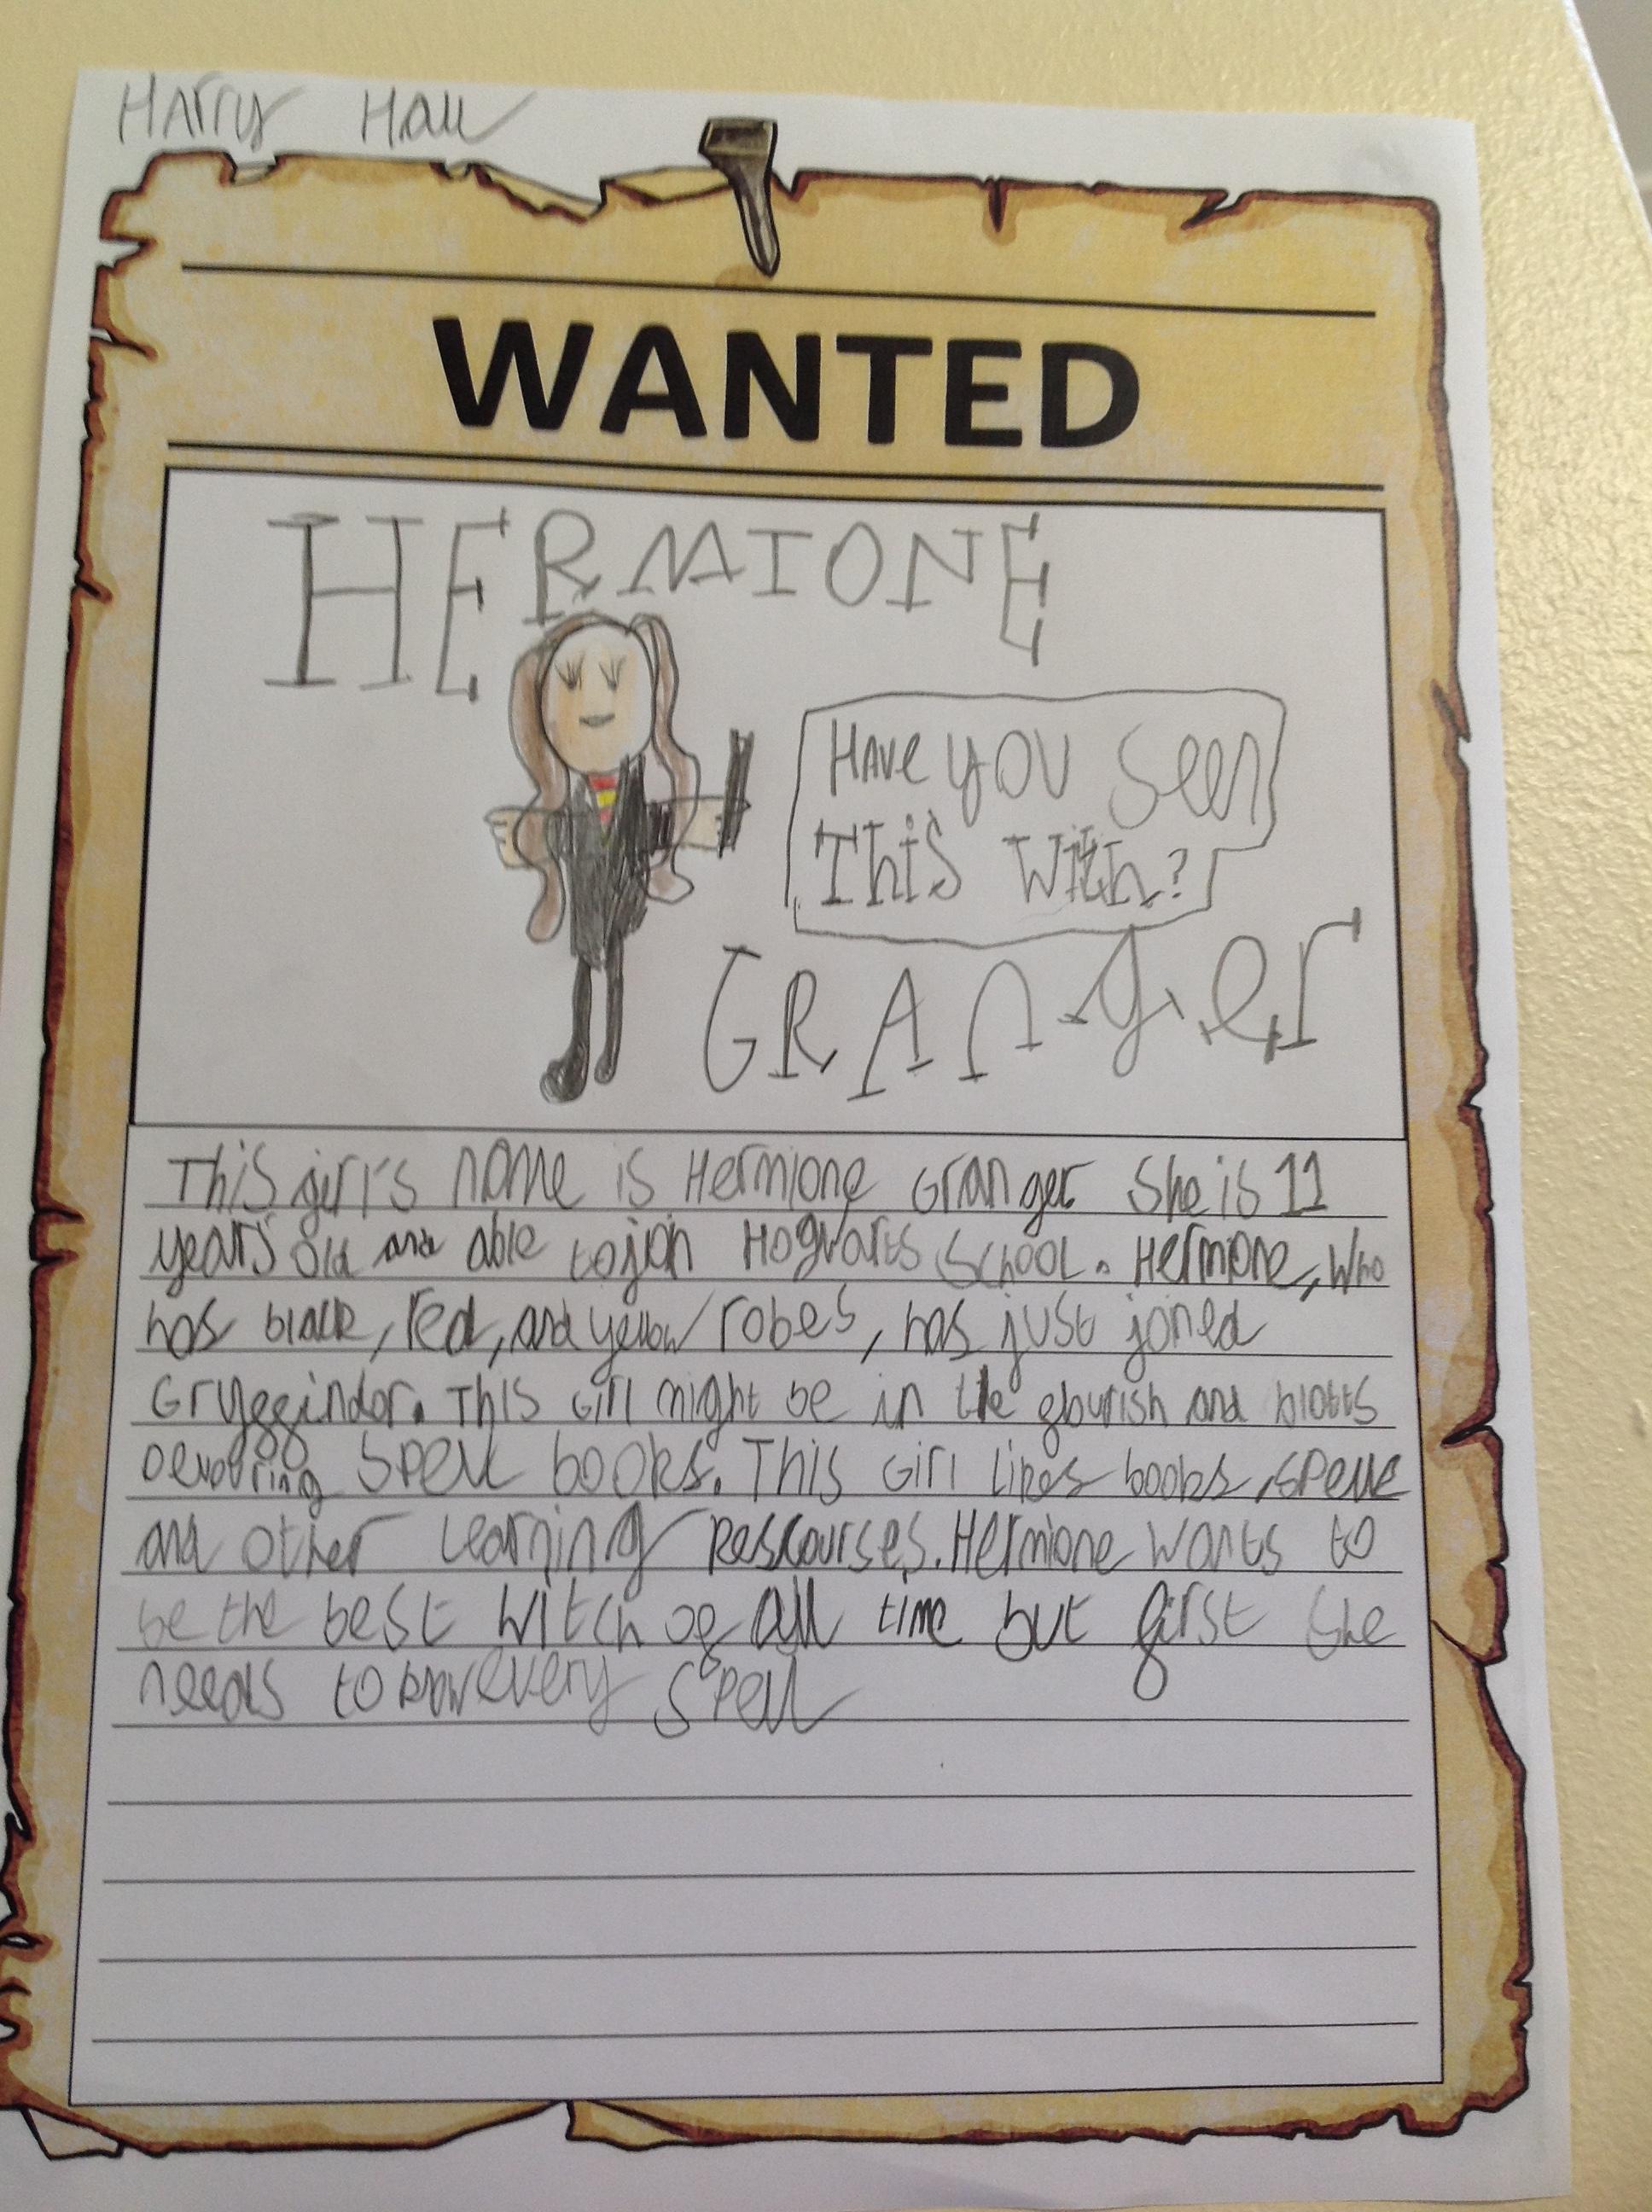 Harry Hall
WANTED
HERMIONE
Have you seen
This With?
GRAnger
This girl's name is Hermione Granger. She is 11
years old and able to join Hogwarts School. Hermione, who
has black, red, and yellow robes, has just joined
Gryggindor. This Girl might be in the glourish and blotts
Devouring Spell books. This Girl likes books, spells
and other Learning Rescourses. Hermione wants to
be the best witch og all time but first she
needs to know every spell